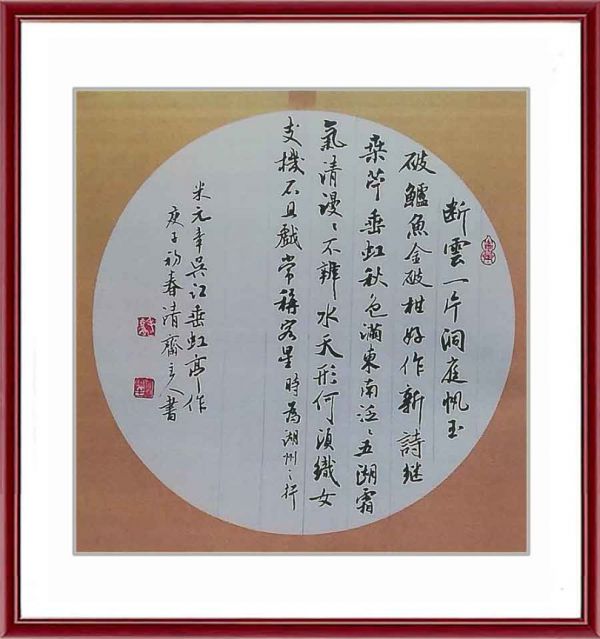 断雲一片洞庭帆玉
破鱸魚金破柑好作新詩継
桑苧垂虹秋色滿東南泛〻五湖霜
氣清漫〻不辨水天形何湏織女
支機石且戲常稱客星時爲湖州之行
米元章吳江垂虹亭作
庚子初春清齋主人書